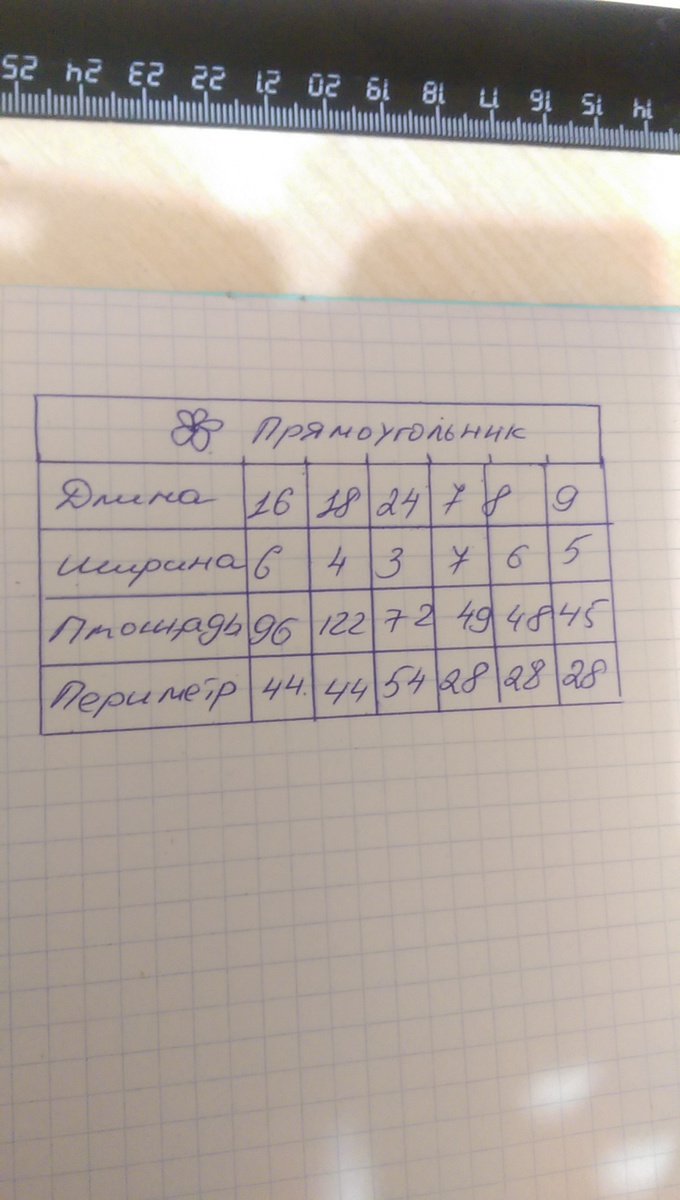 25 24 23 22 21 20 19 18 17 16 15 14
Прямоугольник
Длина 16 18 24 7 8 9
Ширина 6 4 3 7 6 5
Площадь 96 122 72 49 48 45
Периметр 44. 44 54 28 28 28